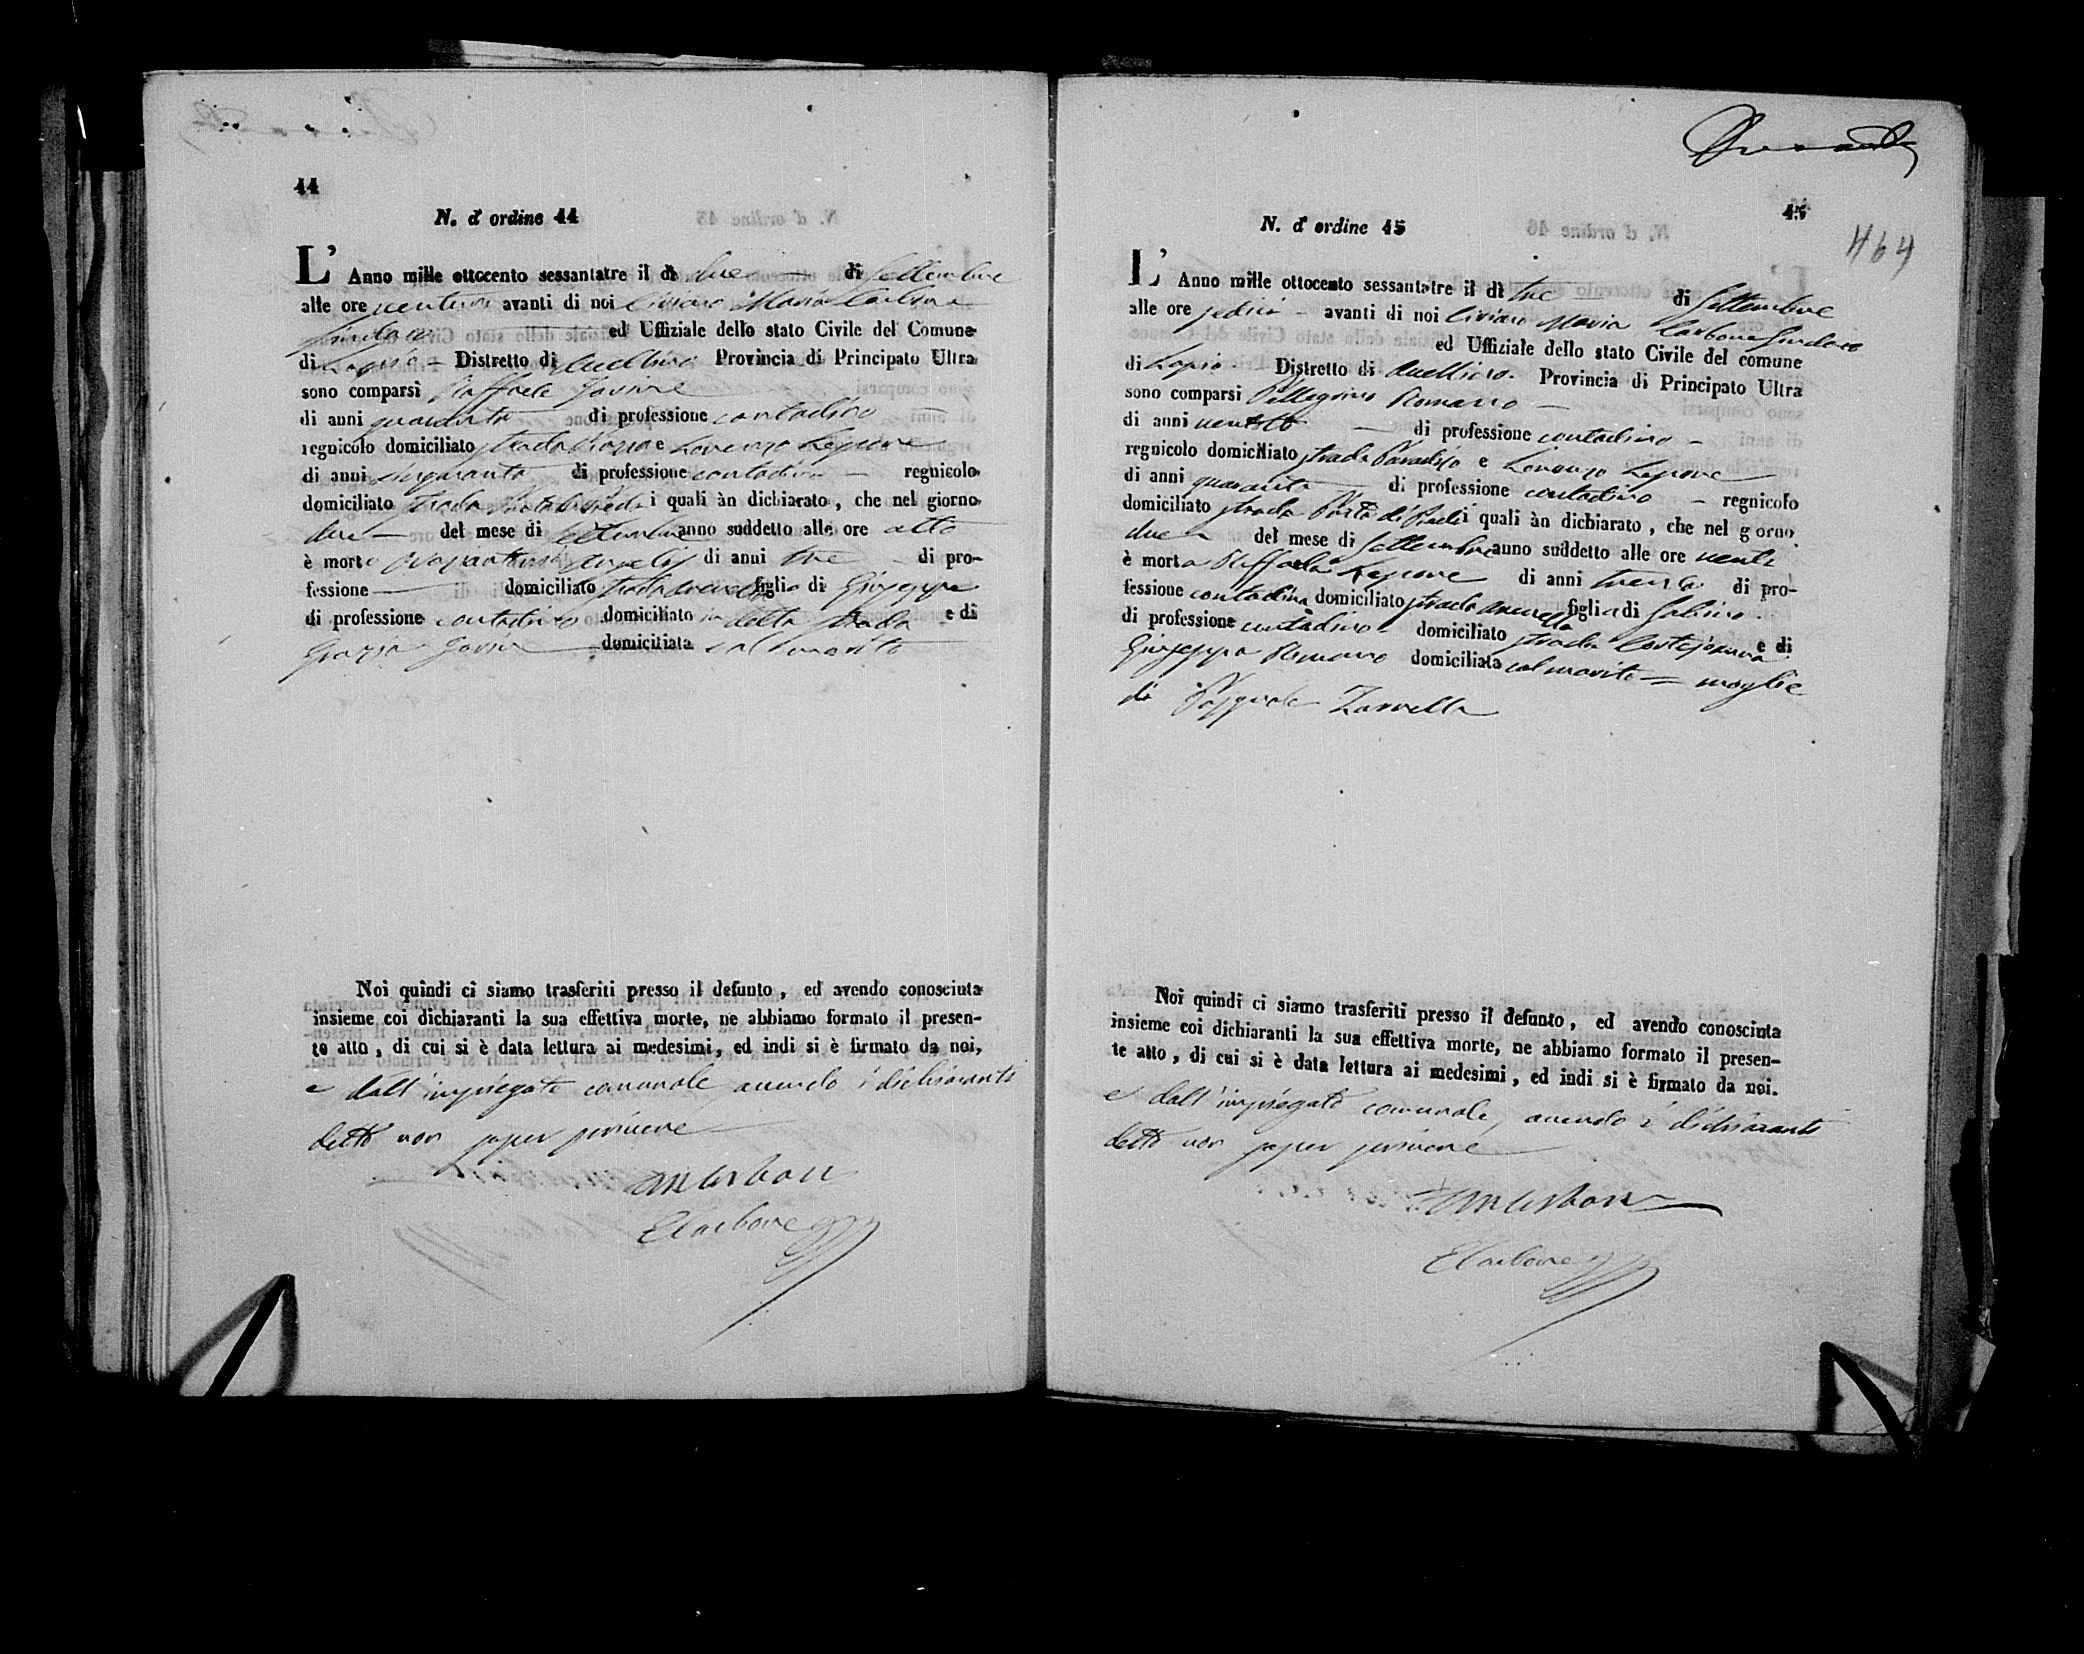 44
N. d' ordine 44
L' Anno mille ottocento sessantatre il dì due di Settembre
alle ore avanti di noi Ciriaco Maria Carbone
Sindaco ed Uffiziale dello stato Civile del Comune
di Lapio Distretto di Avellino Provincia di Principato Ultra
sono comparsi Raffaele
di anni quaranta di professione contadino
regnicolo domiciliato strada e Lorenzo Lepore
di anni di professione contadino regnicolo
domiciliato strada i quali àn dichiarato, che nel giorno
due del mese di Settembre anno suddetto alle ore otto
è morto di anni tre di pro-
fessione domiciliato strada figlio di Giuseppe
di professione contadino domiciliato in detta strada e di
Grazia domiciliata col marito
Noi quindi ci siamo trasferiti presso il defunto, ed avendo conosciuta
insieme coi dichiaranti la sua effettiva morte, ne abbiamo formato il presen-
te atto, di cui si è data lettura ai medesimi, ed indi si è firmato da noi,
e dall' impiegato comunale, avendo i dichiaranti
detto non saper scrivere
CM Carbone
E Carbone
45
464
N. d' ordine 45
L' Anno mille ottocento sessantatre il dì tre di Settembre
alle ore sedici avanti di noi Ciriaco Maria Carbone Sindaco
ed Uffiziale dello stato Civile del comune
di Lapio Distretto di Avellino. Provincia di Principato Ultra
sono comparsi Pellegrino Romano
di anni ventotto di professione contadino
regnicolo domiciliato strada Paradiso e Lorenzo Lepore
di anni quaranta di professione contadino regnicolo
domiciliato strada Porta di i quali àn dichiarato, che nel giorno
due del mese di Settembre anno suddetto alle ore venti
è morta Raffaela Lepore di anni trenta di pro-
fessione contadina domiciliato strada figlia di Sabino
di professione contadino domiciliato strada e di
Giuseppa Romano domiciliata col marito = moglie
di Pasquale Zarrella
Noi quindi ci siamo trasferiti presso il defunto, ed avendo conosciuta
insieme coi dichiaranti la sua effettiva morte, ne abbiamo formato il presen-
te atto, di cui si è data lettura ai medesimi, ed indi si è firmato da noi.
e dall' impiegato comunale, avendo i dichiaranti
detto non saper scrivere
CM Carbone
E Carbone